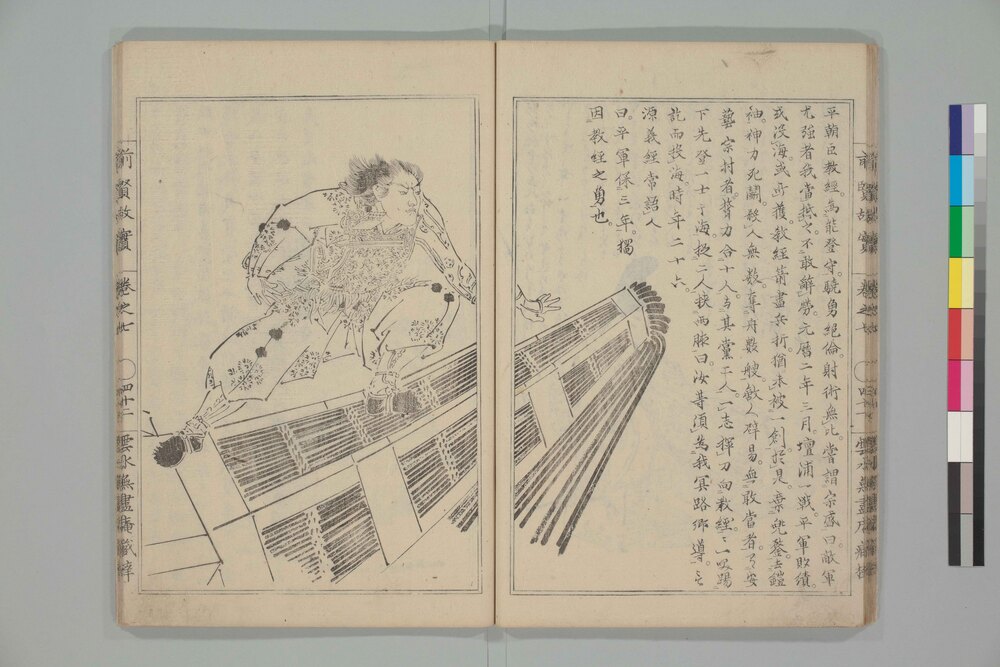 平朝臣教經。為能登守。驍勇絕倫。射術無比。嘗謂宗盛曰。敵軍
尤強者我當抵之。不敢辭勞。元曆二年三月。壇浦一戰。平軍敗績。
或沒海。或斫獲。教經箭盡兵折。猶未被一創。於是。棄兜鍪。去鎧
袖。神力死鬪。殺人無數。奪舟數艘。敵人辟易。無敢當者。有安
藝宗村者。膂力合十人。与其黨二人。一志揮刀向教經。一蹴踢
下先登一士于海。捉二人挾兩腋曰。汝等須為我冥路鄉導。言
訖而投海。時年二十六。
源義經常語人
曰。平軍保三年。獨
因教經之勇也。
前賢故實
卷之七
四十二
雲水無盡庵藏梓